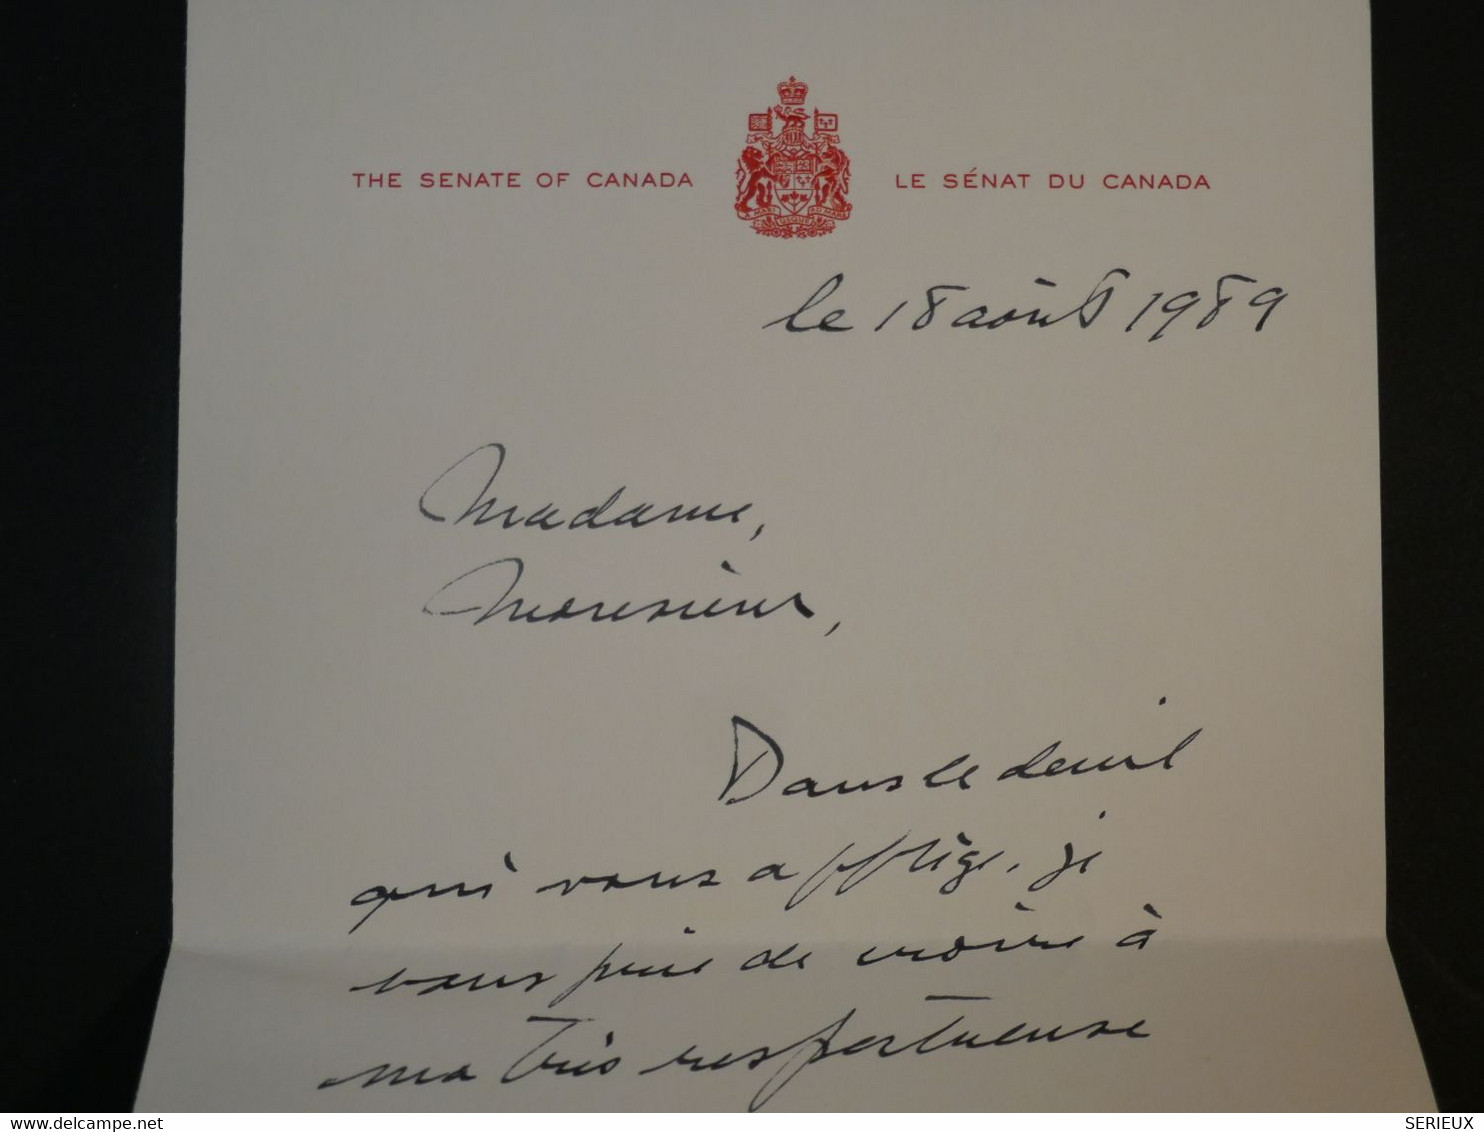 THE SENATE OF CANADA
LE SÉNAT DU CANADA
le 18 août 1989
Madame,
Monsieur,
Dans le deuil
qui vous afflige, je
vous prie de croire à
ma très respectueuse
delcampe.net
SERIEUX